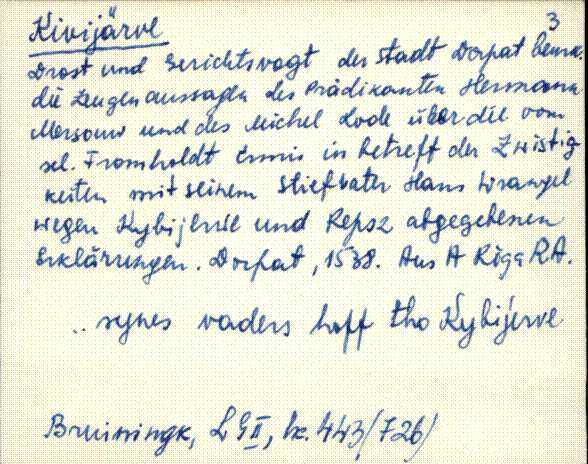 Kivijärve 3
Drost und Gerichtsvogt der Stadt Dorpat beurk.
die Zeugenaussagen des Prädikanten Hermann
Mersouw und des Michel Lode über die vom
sel. Fromholdt Ermis in betreff der Zwistig
keiten mit seinem Stiefvater Hans Wrangel
wegen Kybijerve und Repsz abgegebenen
Erklärungen. Dorpat, 1538. Aus A Riga RA.
.. synes vaders hoff tho Kybijerve
Bruiningk, LG II, lk. 443 (726)